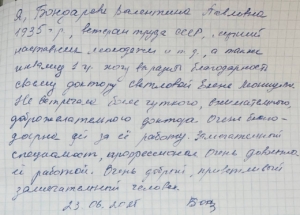 Я, Бондарева Валентина Павловна
1935 г.р., ветеран труда СССР, лучший
наставник молодежи и т.д., а также
инвалид 2 гр. хочу выразить благодарность
своему доктору Светловой Елене
Не встречала более чуткого, внимательного,
доброжелательного доктора. Очень благо-
дарна ей за её работу. Замечательный
специалист, профессионал. Очень довольна
её работой. Очень добрый, приветливый
замечательный человек.
23.06.2025 Бон